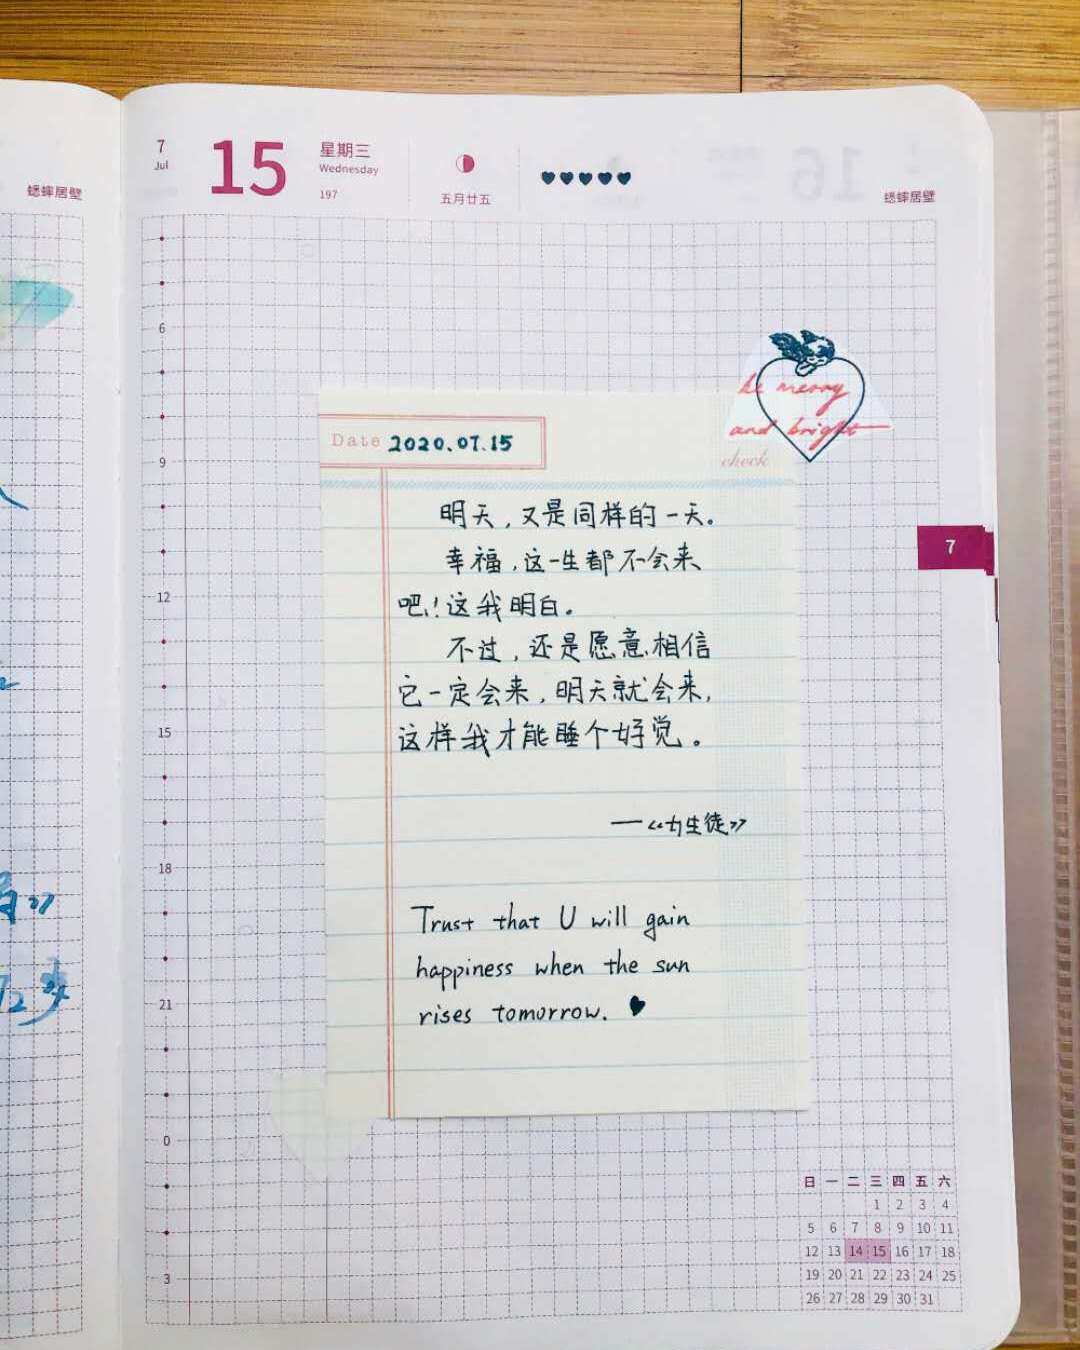 7
Jul
15
星期三
Wednesday
197
五月廿五
蟋蟀居壁
蟋蟀居壁
6
9
12
15
18
21
0
3
be merry
and bright
check
Date 2020.07.15
明天，又是同样的一天。
幸福，这一生都不会来
吧！这我明白。
不过，还是愿意相信
它一定会来，明天就会来，
这样我才能睡个好觉。
—《女生徒》
Trust that U will gain
happiness when the sun
rises tomorrow.
7
日 一 二 三 四 五 六
1 2 3 4
5 6 7 8 9 10 11
12 13 14 15 16 17 18
19 20 21 22 23 24 25
26 27 28 29 30 31